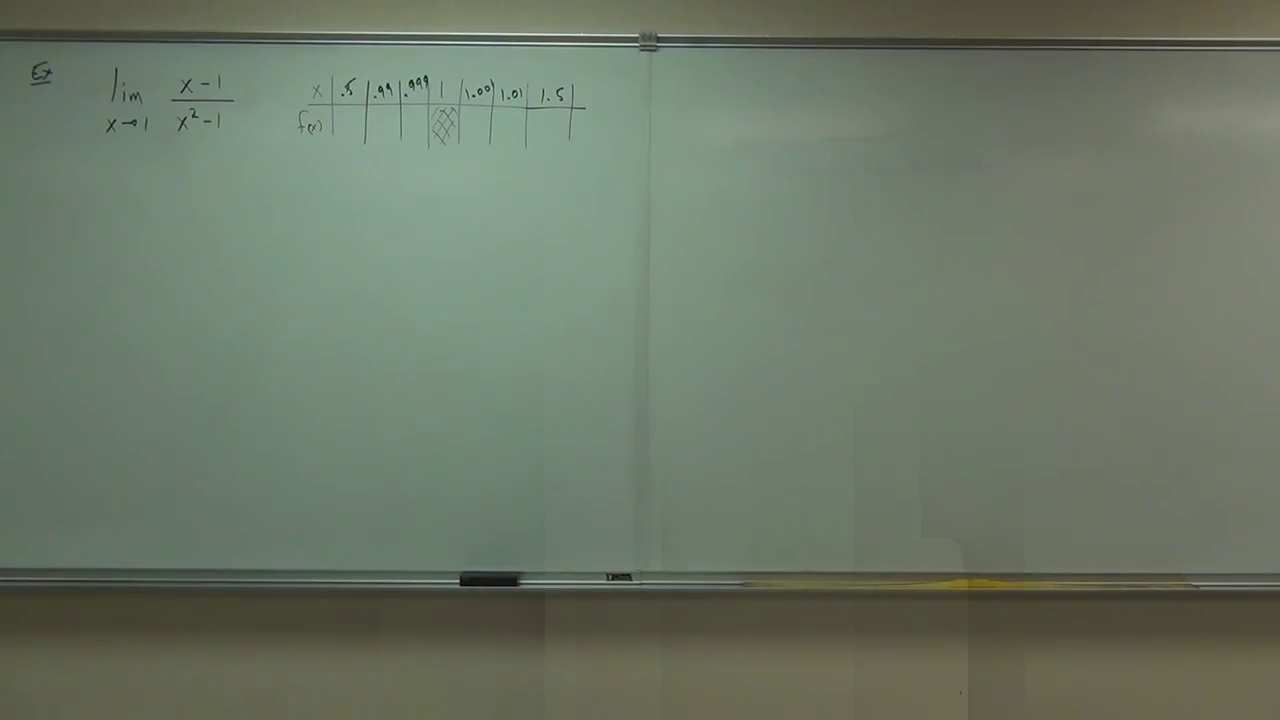 Ex
lim x→1 x-1 / x²-1
x .5 .99 .999 1 1.001 1.01 1.5
f(x)